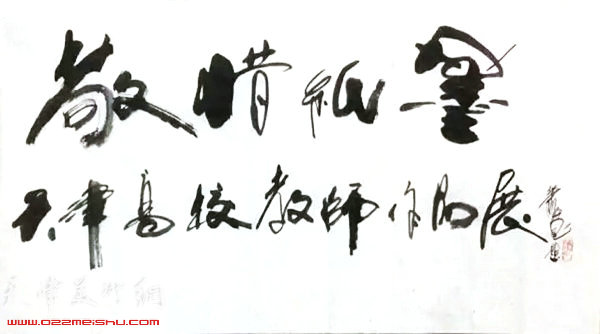 敬惜紙墨
天津高校教師作品展
天津美术网
www.022meishu.com